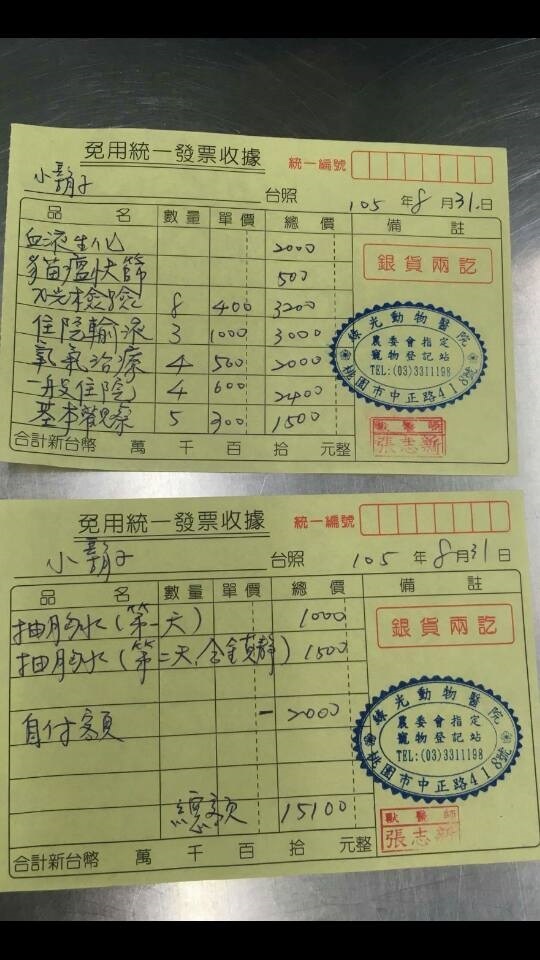 免用統一發票收據
統一編號
小霸子 台照 105 年 8 月 31 日
品 名 數量 單價 總價 備 註
血液生化 2000
貓瘟快篩 500
X光檢驗 8 400 3200
住院輸液 3 1000 3000
氧氣治療 4 500 2000
一般住院 4 600 2400
基本觀察 5 300 1500
合計新台幣 萬 千 百 拾 元整
銀貨兩訖
綠光動物醫院
農委會指定
寵物登記站
TEL:(03)3311198
桃園市中正路418號
獸醫師
張志新
免用統一發票收據
統一編號
小霸子 台照 105 年 8 月 31 日
品 名 數量 單價 總價 備 註
抽胸水(第一天) 1000
抽胸水(第二天,含鎮靜) 1500
自付額 - 2000
總額 15100
合計新台幣 萬 千 百 拾 元整
銀貨兩訖
綠光動物醫院
農委會指定
寵物登記站
TEL:(03)3311198
桃園市中正路418號
獸醫師
張志新